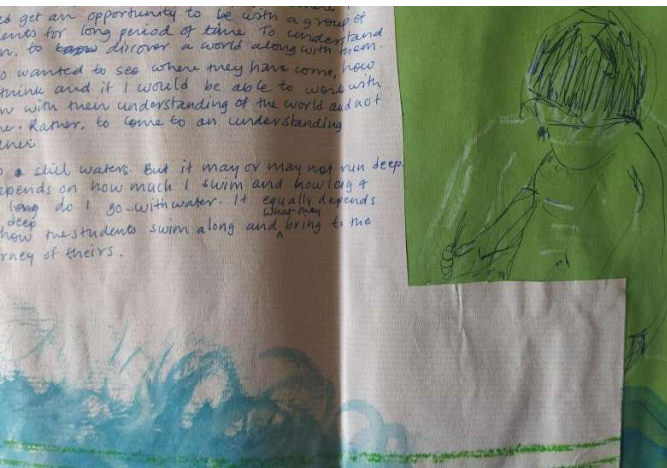 get an opportunity to be with a group of
ents for long period of time. To understand
to discover a world along with them.
o wanted to see where they have come, how
think and if I would be able to work with
with their understanding of the world and not
Rather, to come to an understanding
still waters. But it may or may not run deep.
epends on how much I swim and how long &
deep do I go with water. It equally depends
how the students swim along and what they bring to the
rney of theirs.